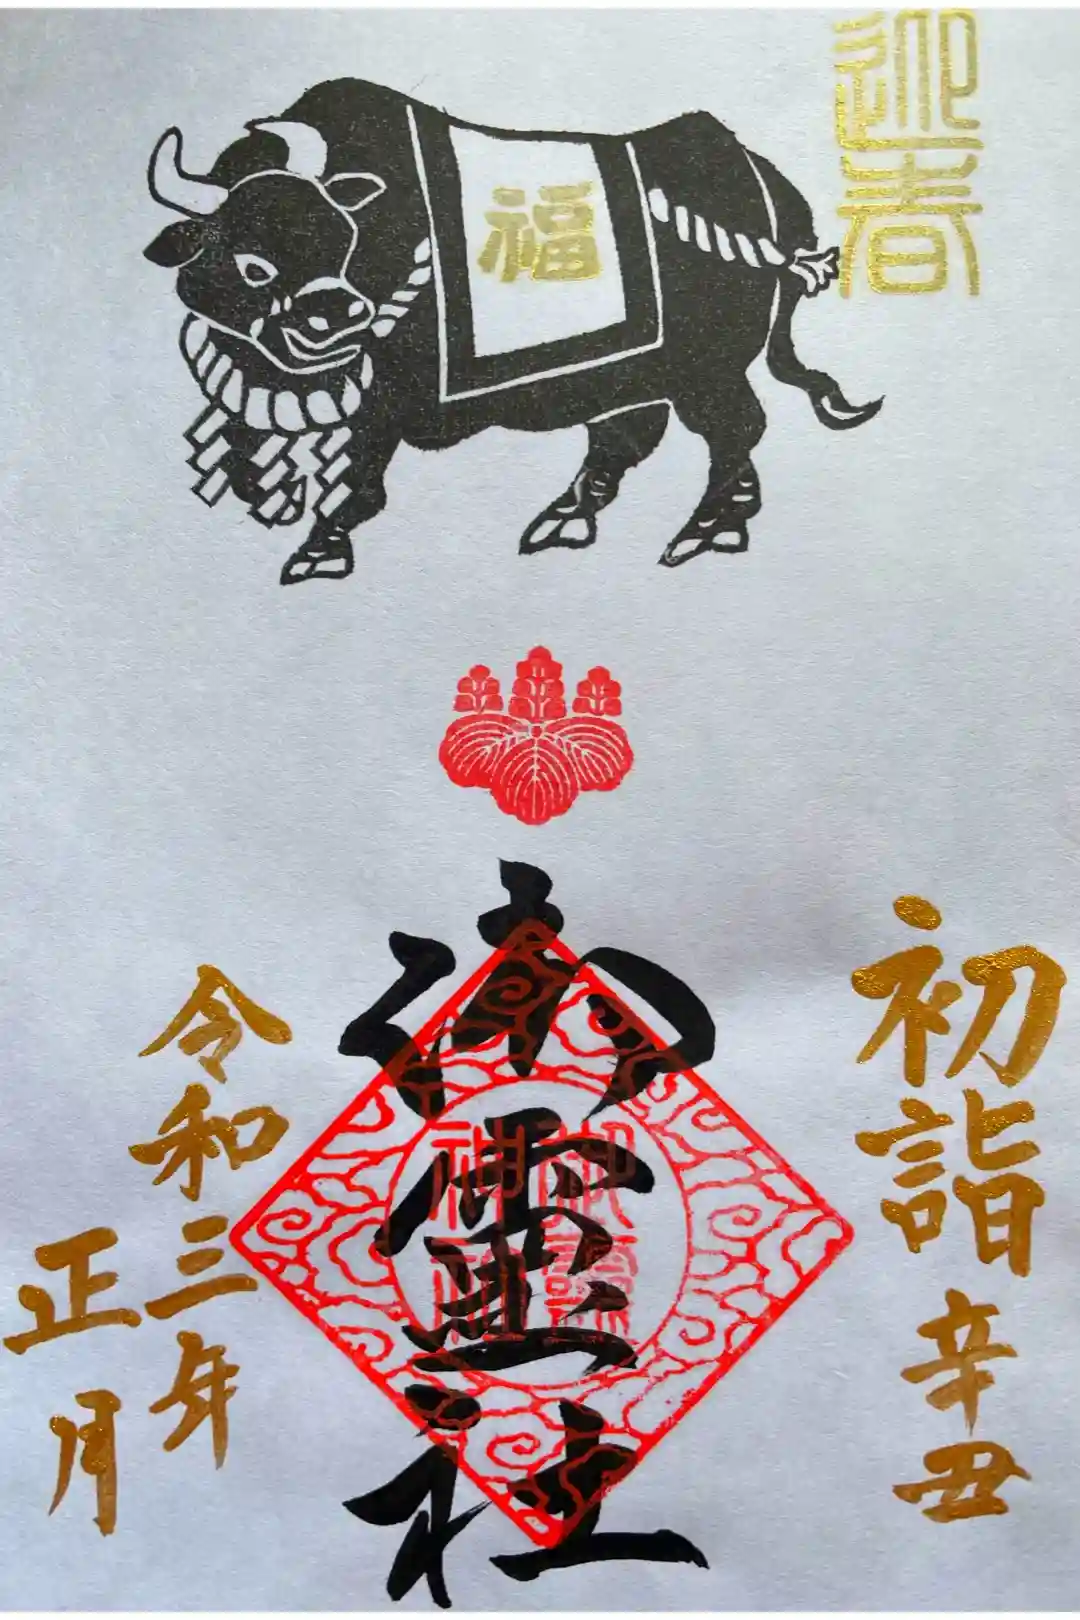 迎春
福
初詣 辛丑
御霊社
御靈
神社
令和三年
正月